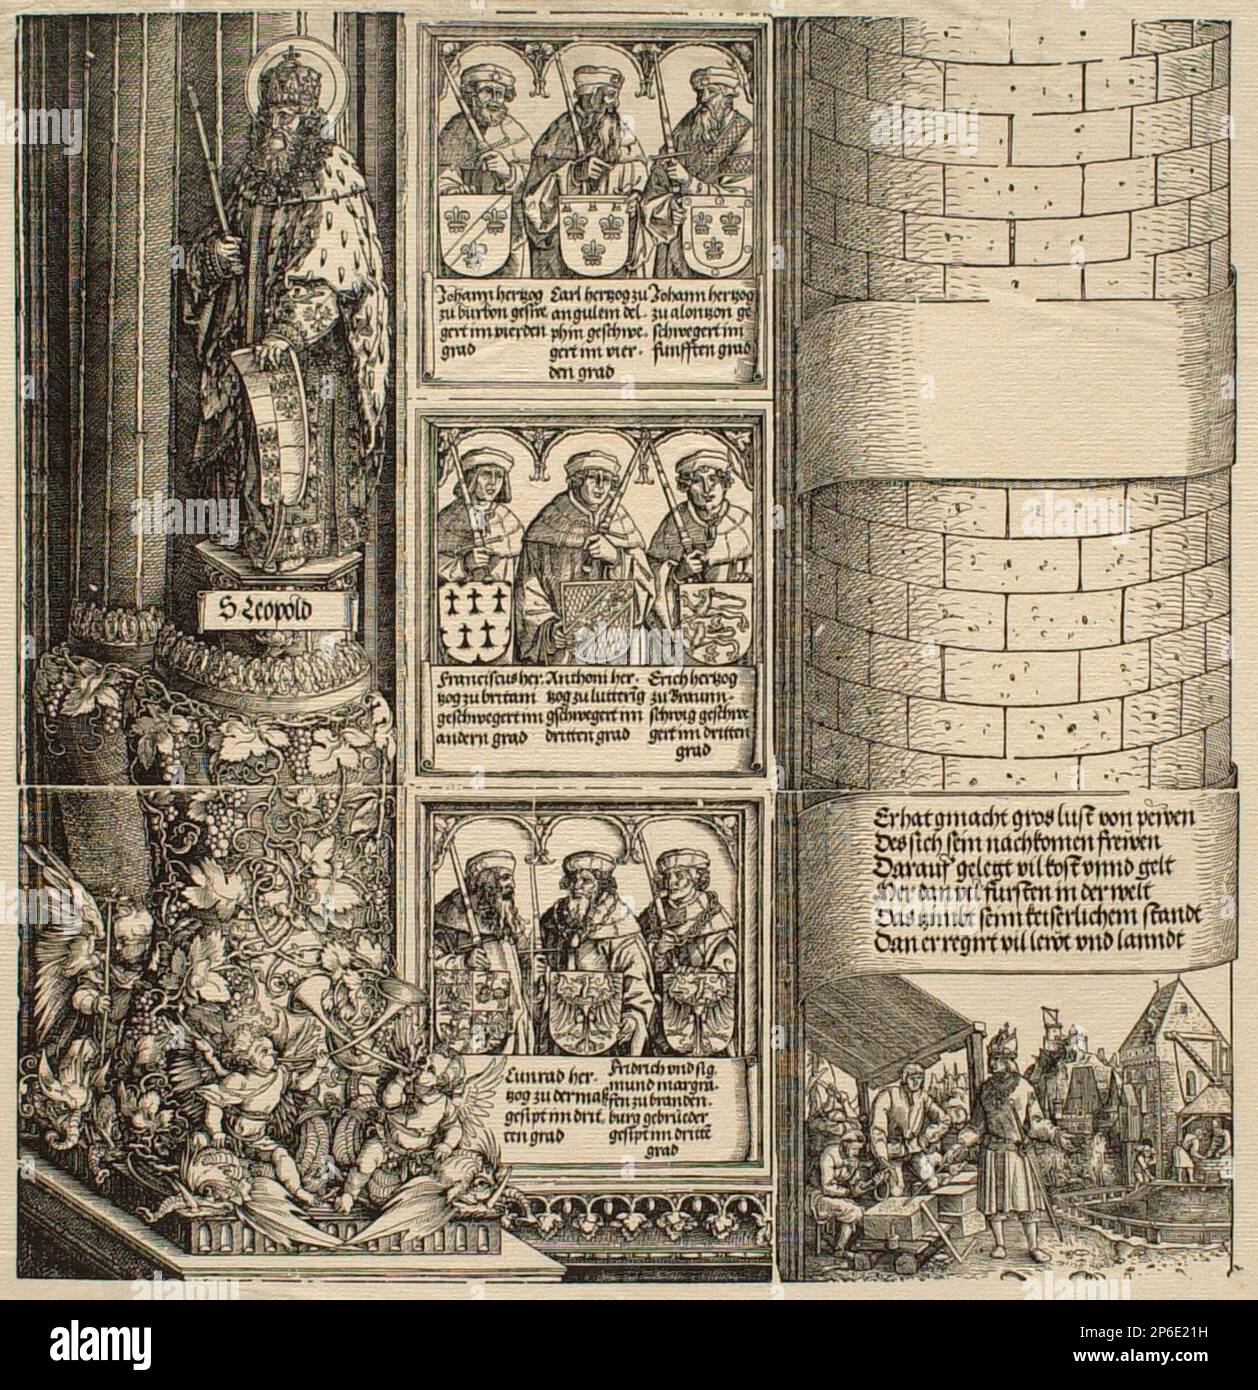 S Leopold
Johann hertzog
zu burbon gesiye
gert im vierden
grad
Carl hertzog zu
angulem del-
phin geschwe-
gert im vier-
den grad
Johann hertzog
zu alonzon ge
schwegert im
funfften grad
Franciscus her-
tzog zu britani
geschwegert im
andern grad
Anthoni her-
tzog zu lutterig
gschwegert im
dritten grad
Erich hertzog
zu Braunn-
schwig geschwe
gert im dritten
grad
Cunrad her-
tzog zu der maß
gesipt im drit-
ten grad
Fridrich vnd sig
mund margra-
fen zu branden-
burg gebrüeder
gesipt im dritte
grad
Er hat gmacht gros lust von
Des sich sein nachkomen frewen
Darauf gelegt vil kost vnnd gelt
Mer dan vil fursten in der welt
Das zimbt seim keiserlichem standt
Dan er regirt vil lewt vnd lanndt
alamy
alamy
Image ID: 2P6E21H
www.alamy.com